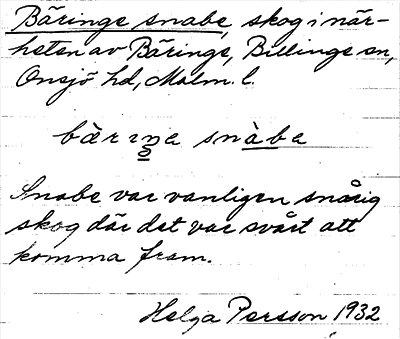 Bäringe snabe, skog i när-
heten av Bäringe, Billinge sn,
Onsjö hd, Malm. l.
bæ̀rıŋa snàba
Snabe var vanligen snårig
skog där det var svårt att
komma fram.
Helga Persson 1932